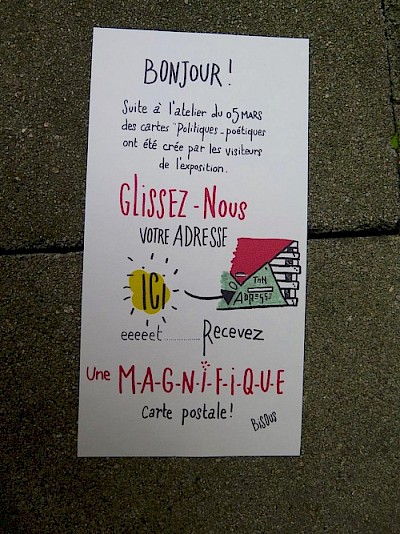 BONJOUR !
Suite à l'atelier du 05 MARS
des cartes "Politiques-poétiques
ont été crée par les visiteurs
de l'exposition.
GLISSEZ-NOUS
VOTRE ADRESSE
ICI
TON
ADRESSE
eeeeet............. Recevez
Une M-A-G-N-I-F-I-Q-U-E
Carte postale!
BISOUS